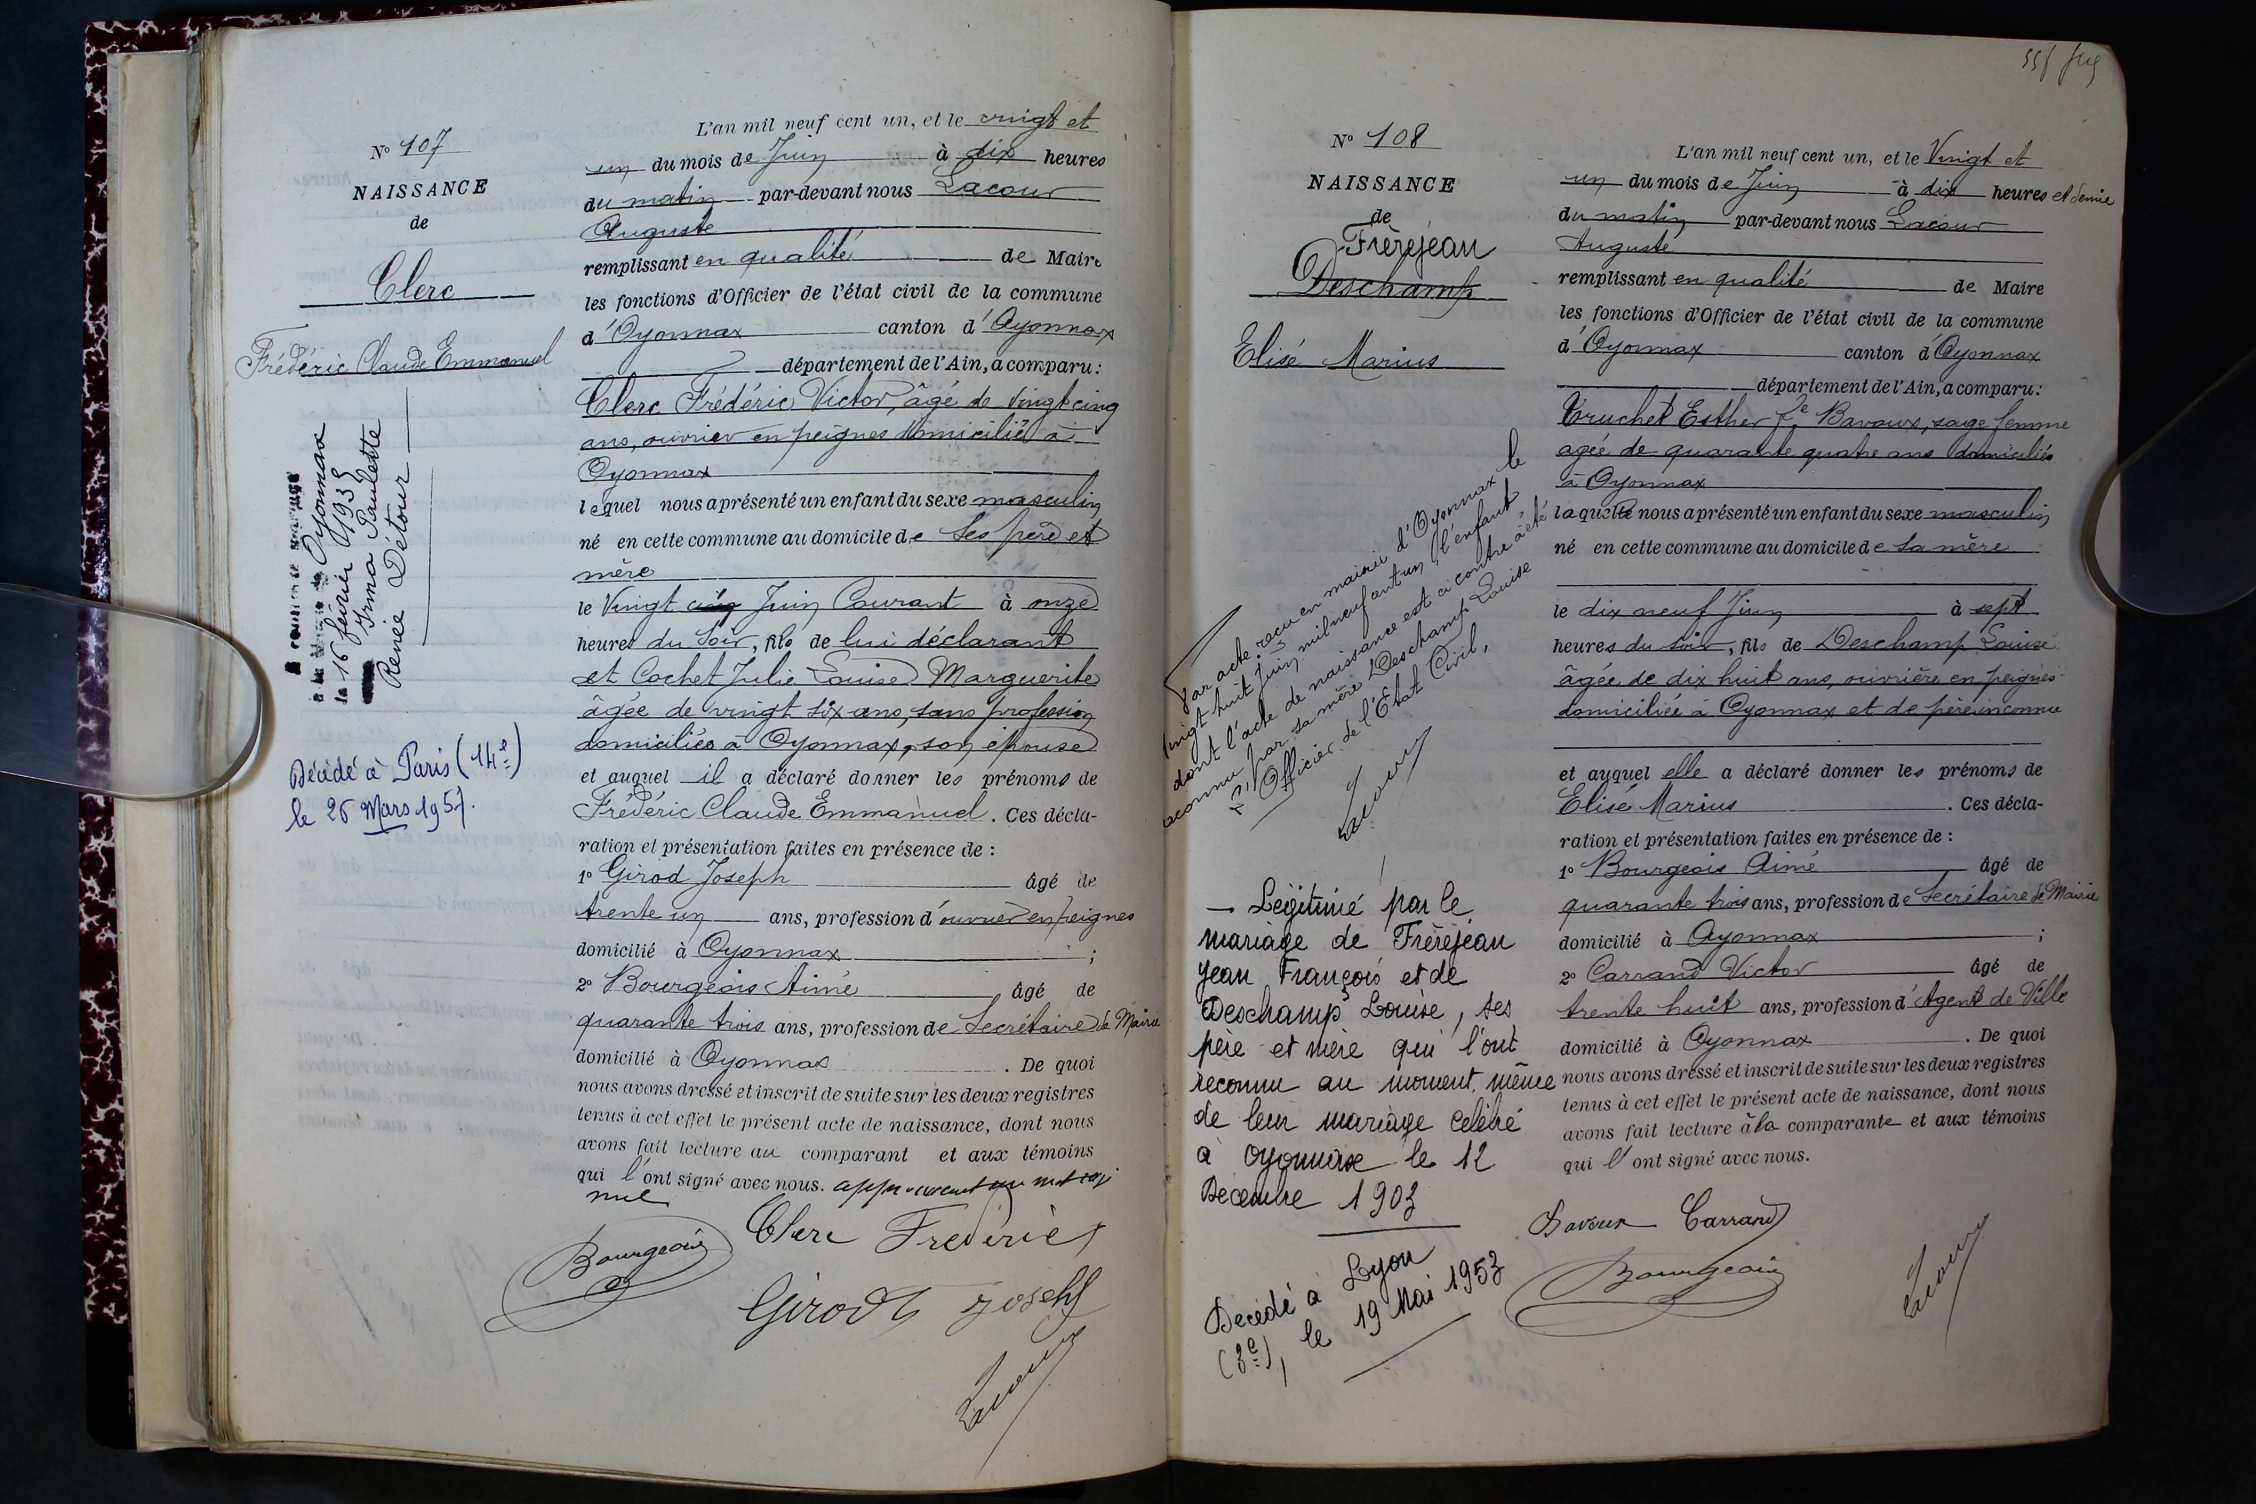 N° 107
NAISSANCE
de
Clerc
Frédéric Claude Emmanuel
A contracté mariage
à la Mairie de Oyonnax
le 16 février 1935
Irma Paulette
Renée Détour
Décédé à Paris (14e)
le 26 Mars 1957.
L'an mil neuf cent un, et le vingt et
un du mois de Juin à dix heures
du matin par-devant nous Lacour
Auguste
remplissant en qualité de Maire
les fonctions d'Officier de l'état civil de la commune
d'Oyonnax canton d'Oyonnax
département de l'Ain, a comparu :
Clerc Frédéric Victor, âgé de vingt cinq
ans, ouvrier en peignes domicilié à
Oyonnax
lequel nous a présenté un enfant du sexe masculin
né en cette commune au domicile de ses père et
mère
le Vingt cinq Juin Courant à onze
heures du soir, fils de lui déclarant
et Cochet Julie Louise Marguerite
âgée de vingt six ans, sans profession
domiciliés à Oyonnax, son épouse
et auquel il a déclaré donner les prénoms de
Frédéric Claude Emmanuel. Ces décla-
ration et présentation faites en présence de :
1° Girod Joseph âgé de
trente un ans, profession d'ouvrier en peignes
domicilié à Oyonnax ;
2° Bourgeois Aimé âgé de
quarante trois ans, profession de Secrétaire de Mairie
domicilié à Oyonnax. De quoi
nous avons dressé et inscrit de suite sur les deux registres
tenus à cet effet le présent acte de naissance, dont nous
avons fait lecture au comparant et aux témoins
qui l'ont signé avec nous. approuvant un mot rayé
nul
Bourgeois Clerc Frederic
Girodt Joseph
Lacour
555
N° 108
NAISSANCE
de
Frèrejean
Deschamp
Elisé Marius
Par acte reçu en mairie d'Oyonnax le
vingt huit Juin mil neuf cent un, l'enfant
dont l'acte de naissance est ci contre à été
reconnu par sa mère Deschamp Louise
L'Officier de l'Etat Civil,
Lacour
— Légitimé par le
mariage de Frèrejean
Jean François et de
Deschamp Louise, ses
père et mère qui l'ont
reconnu au moment même
de leur mariage célébré
à Oyonnax le 12
Décembre 1903
Décédé à Lyon
(3e), le 19 Mai 1953
L'an mil neuf cent un, et le Vingt et
un du mois de Juin à dix heures et demie
du matin par-devant nous Lacour
Auguste
remplissant en qualité de Maire
les fonctions d'Officier de l'état civil de la commune
d'Oyonnax canton d'Oyonnax
département de l'Ain, a comparu :
Truchet Esther fe Bavoux, sage femme
agée de quarante quatre ans domiciliée
à Oyonnax
laquelle nous a présenté un enfant du sexe masculin
né en cette commune au domicile de sa mère
le dix neuf Juin à sept
heures du soir, fils de Deschamp Louise
âgée de dix huit ans, ouvrière en peignes
domiciliée à Oyonnax et de père inconnu
et auquel elle a déclaré donner les prénoms de
Elisé Marius. Ces décla-
ration et présentation faites en présence de :
1° Bourgeois Aimé âgé de
quarante trois ans, profession de Secrétaire de Mairie
domicilié à Oyonnax ;
2° Carrand Victor âgé de
trente huit ans, profession d'Agent de Ville
domicilié à Oyonnax. De quoi
nous avons dressé et inscrit de suite sur les deux registres
tenus à cet effet le présent acte de naissance, dont nous
avons fait lecture à la comparante et aux témoins
qui l'ont signé avec nous.
Bavoux Carrand
Bourgeois
Lacour